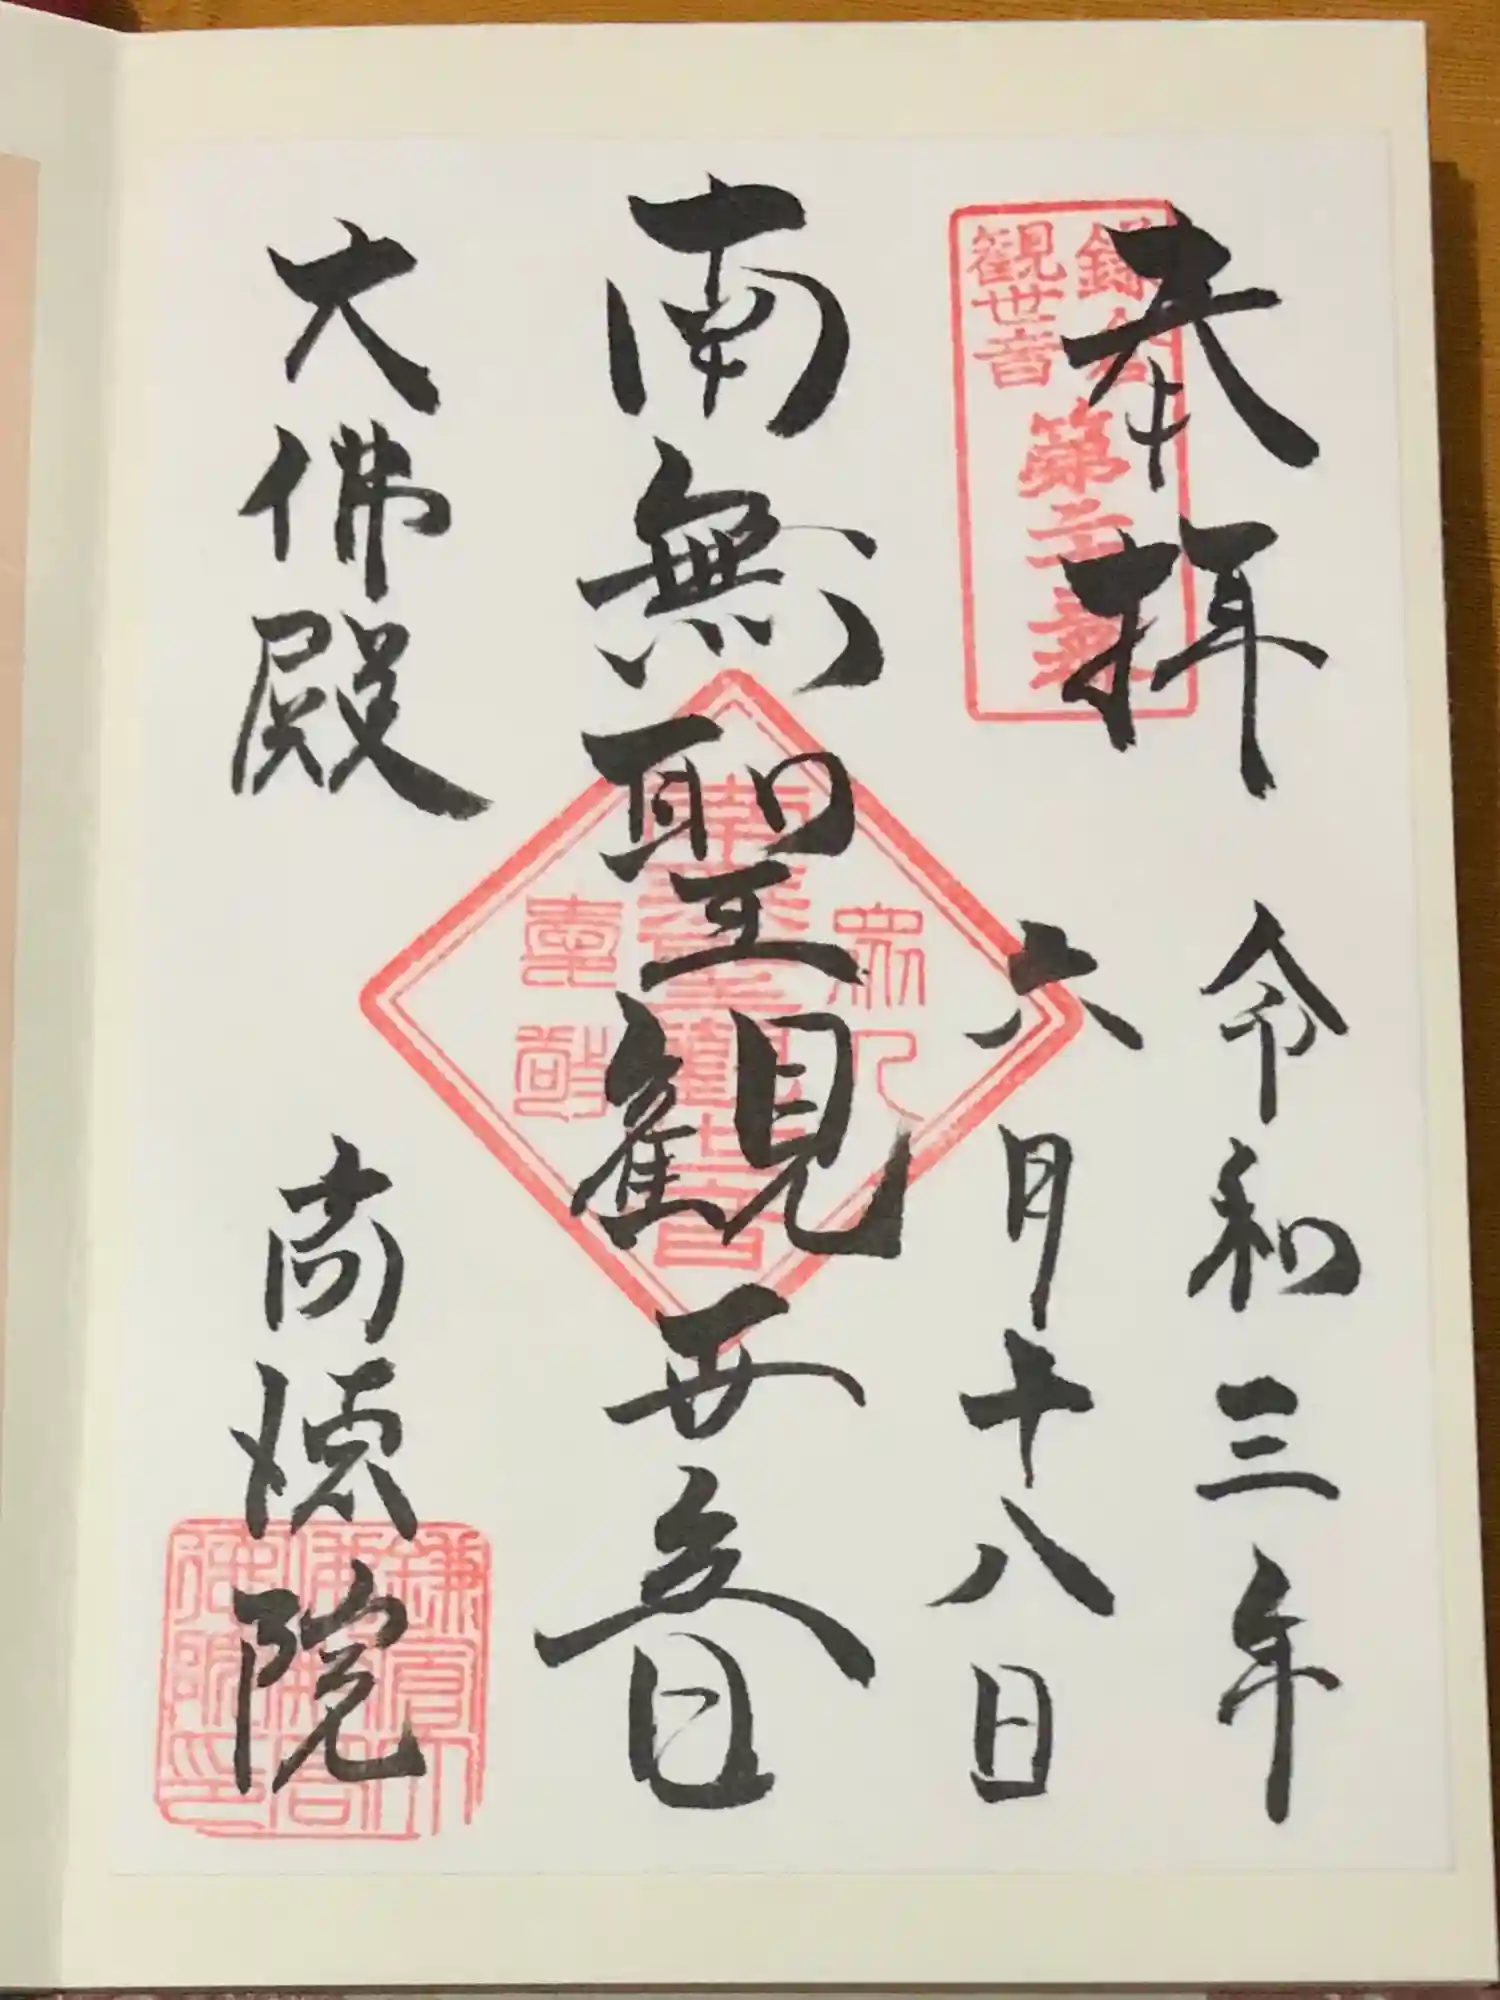 奉拝
令和三年
六月十八日
鎌倉
観世音
第二十三番
南無聖観世音
大佛殿
高徳院